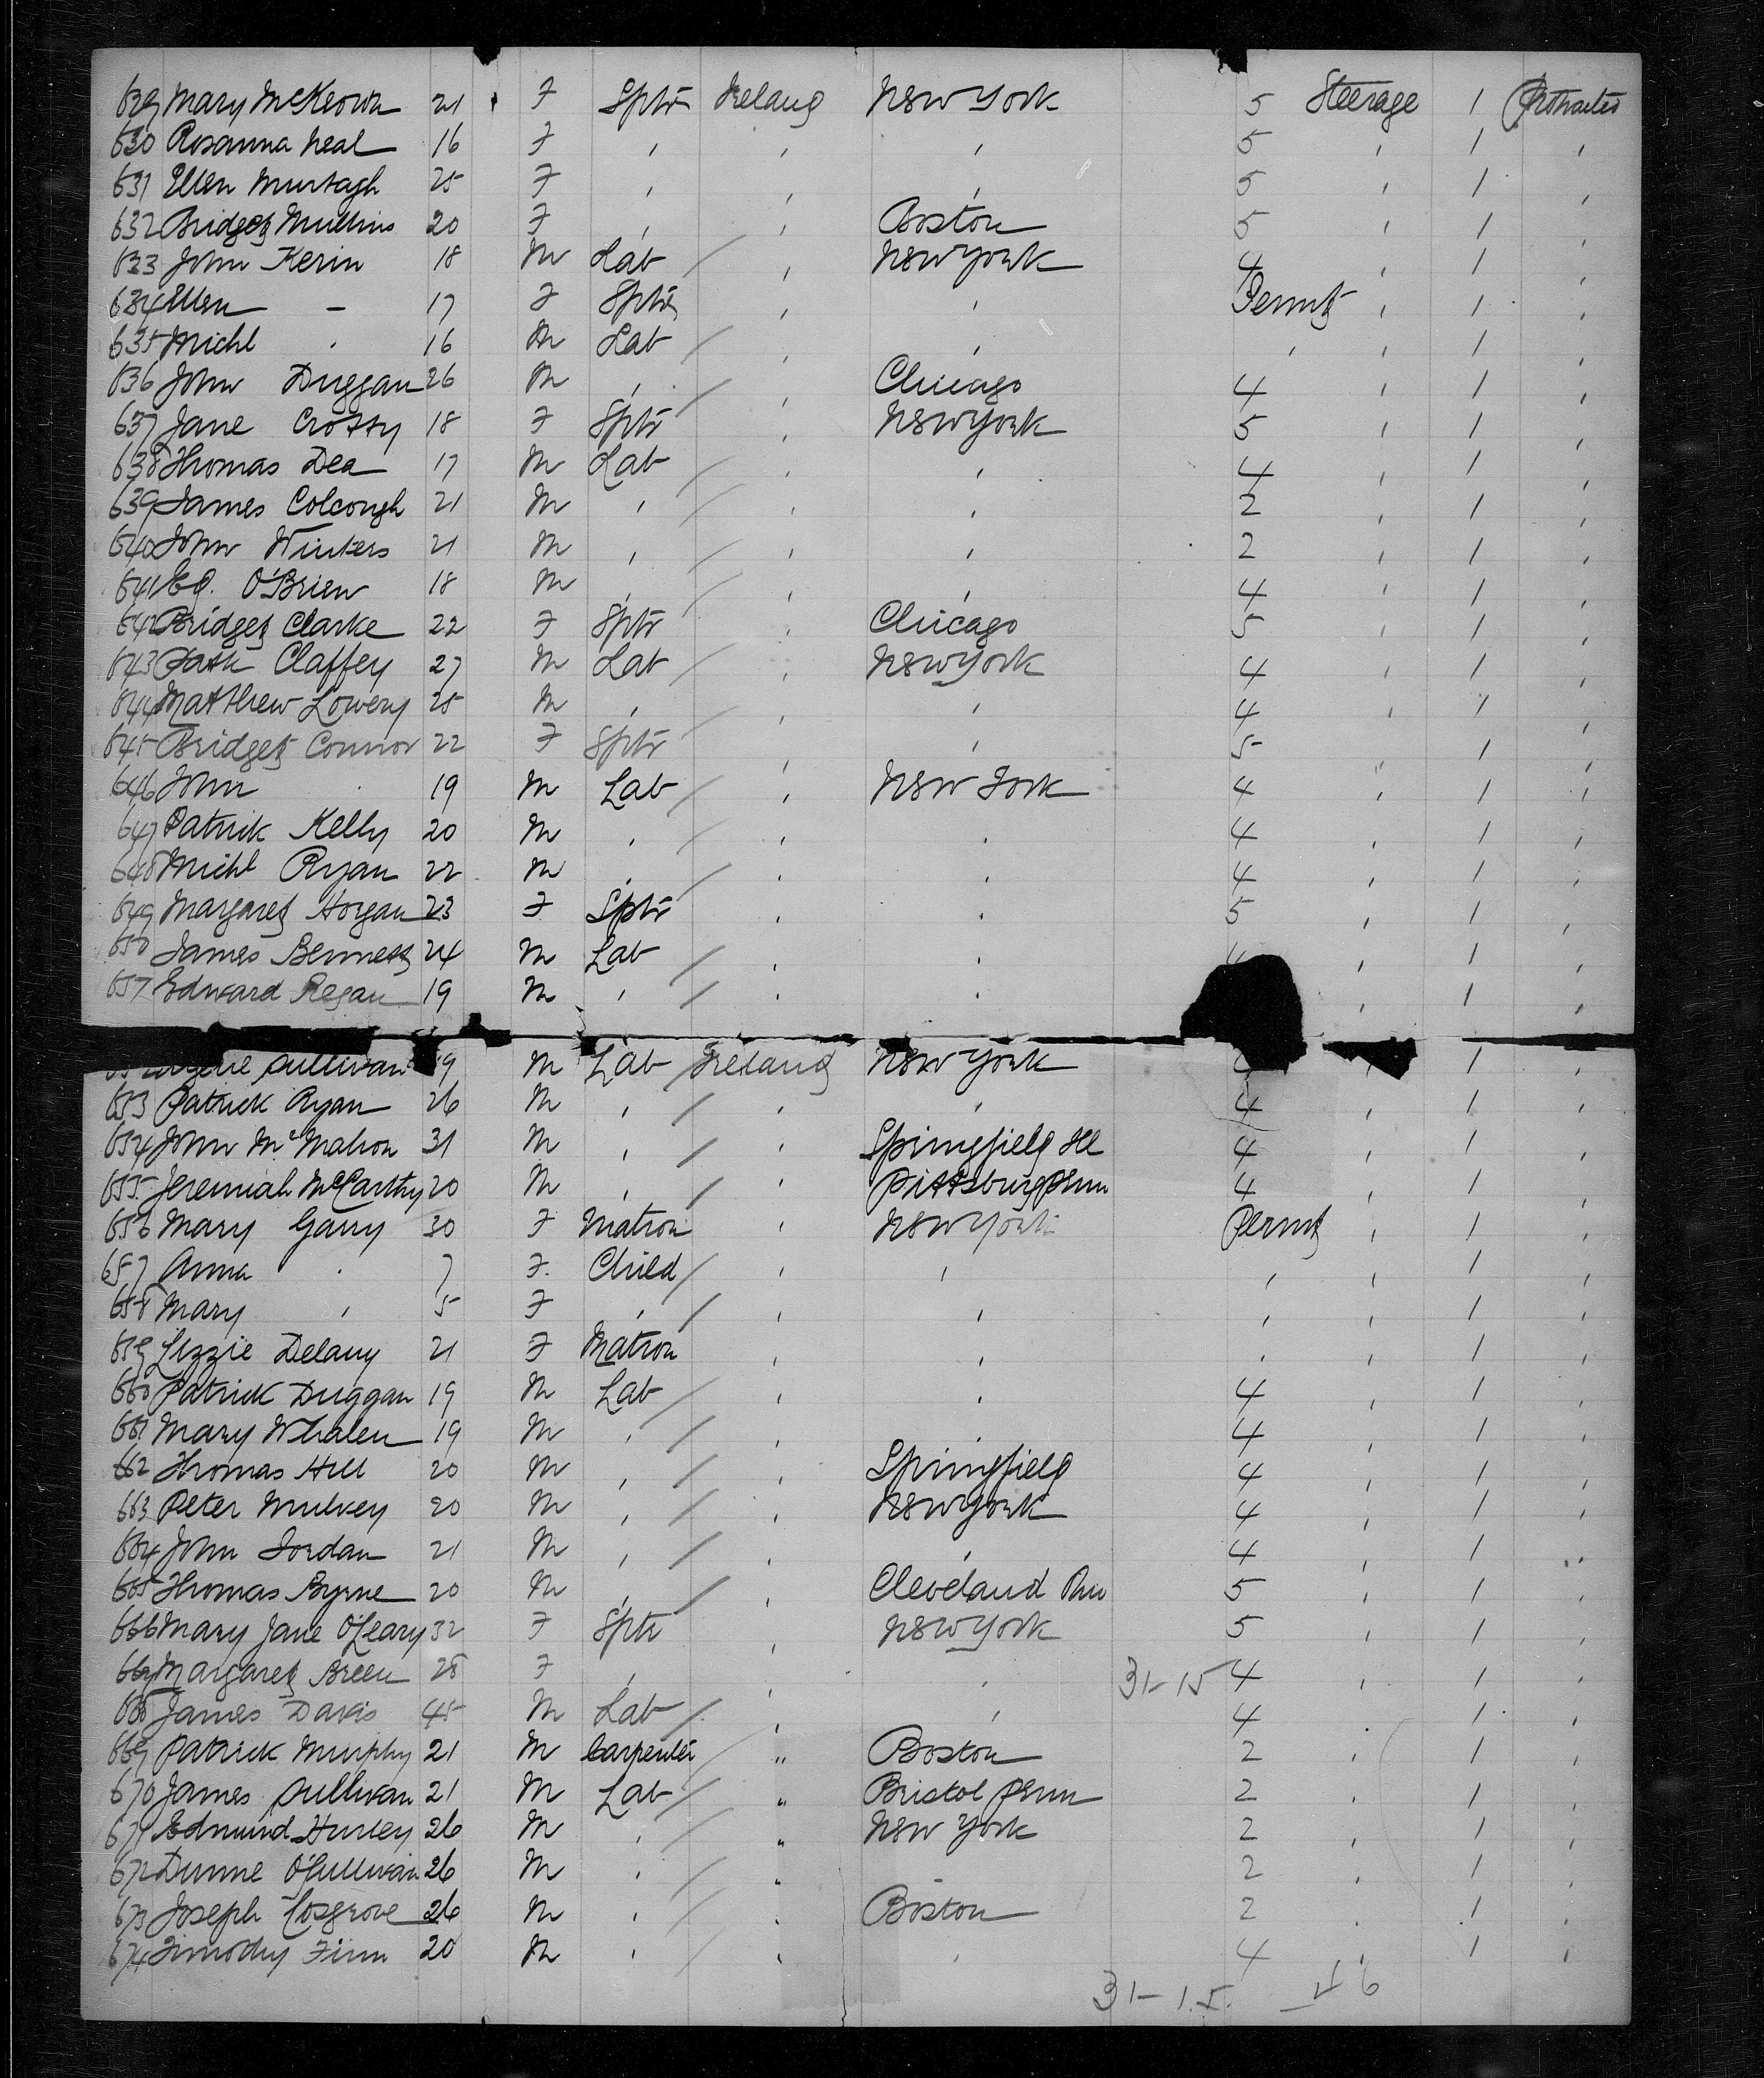 629 Mary McKeown 21 F Sptr Ireland New York 5 Steerage 1 Protracted
630 Rosanna Neal 16 F " " " 5 " 1 "
631 Ellen Murtagh 25 F " " " 5 " 1 "
632 Bridget Mullins 20 F " " Boston 5 " 1 "
633 John Kerin 18 M Lab / " New York 4 " 1 "
634 Ellen - 17 F Sptr " " Permt " 1 "
635 Michl " 16 M Lab / " " " " 1 "
636 John Duggan 26 M " / " Chicago 4 " 1 "
637 Jane Crotty 18 F Sptr " New York 5 " 1 "
638 Thomas Dea 17 M Lab / " " 4 " 1 "
639 James Colcough 21 M " / " " 2 " 1 "
640 John Winters 21 M " / " " 2 " 1 "
641 Ed. O'Brien 18 M " / " " 4 " 1 "
642 Bridget Clarke 22 F Sptr " Chicago 5 " 1 "
643 Patk Claffey 27 M Lab / " New York 4 " 1 "
644 Matthew Lowery 25 M " / " " 4 " 1 "
645 Bridget Connor 22 F Sptr " " 5 1 "
646 John " 19 M Lab / " New York 4 " 1 "
647 Patrick Kelly 20 M " / " " 4 " 1 "
648 Michl Ryan 22 M " / " " 4 " 1 "
649 Margaret Horgan 23 F Sptr " " 5 " 1 "
650 James Bennett 24 M Lab / " " " 1 "
651 Edward Regan 19 M " / " " " 1 "
Sullivan 19 M Lab / Ireland New York " 1 "
653 Patrick Ryan 26 M " / " " 4 " 1 "
654 John McMahon 31 M " / " Springfield Ill 4 " 1 "
655 Jeremiah McCarthy 20 M " / " Pittsburg Penn 4 " 1 "
656 Mary Garry 30 F Matron " New York Permt " 1 "
657 Anna " 7 F. Child / " " " " 1 "
658 Mary " 5 F " / " " " " 1 "
659 Lizzie Delany 21 F Matron " " " " 1 "
660 Patrick Duggan 19 M Lab / " " 4 " 1 "
661 Mary Whalen 19 M " / " " 4 " 1 "
662 Thomas Hill 20 M " / " Springfield 4 " 1 "
663 Peter Mulvey 20 M " / " New York 4 " 1 "
664 John Jordan 21 M " / " " 4 " 1 "
665 Thomas Byrne 20 M " / " Cleveland 5 " 1 "
666 Mary Jane O'Leary 32 F Sptr " New York 5 " 1 "
667 Margaret Breen 28 F " " " 31-15 4 " 1 "
668 James Davis 45 M Lab / " " 4 1 "
669 Patrick Murphy 21 M Carpenter " Boston 2 " 1 "
670 James Sullivan 21 M Lab / " Bristol Penn 2 " 1 "
671 Edmund Hurley 26 M " / " New York 2 " 1 "
672 O'Sullivan 26 M " / " 2 " 1 "
673 Joseph Cosgrove 26 M " / " Boston 2 " 1 "
674 Timothy Finn 20 M " / " " 4 " 1 "
31-15.